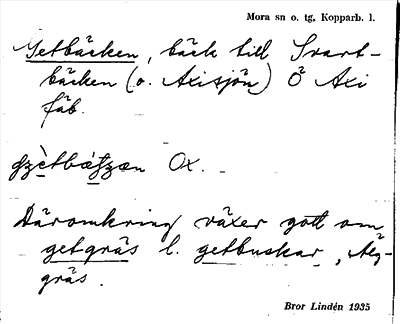 Mora sn o. tg, Kopparb. l.
Getbäcken, bäck till Svart-
bäcken (o. Axisjön) Ö Axi
fäb.
Ox.
Däromkring växer gott om
getgräs l. getbuskar,
gräs.
Bror Lindén 1935